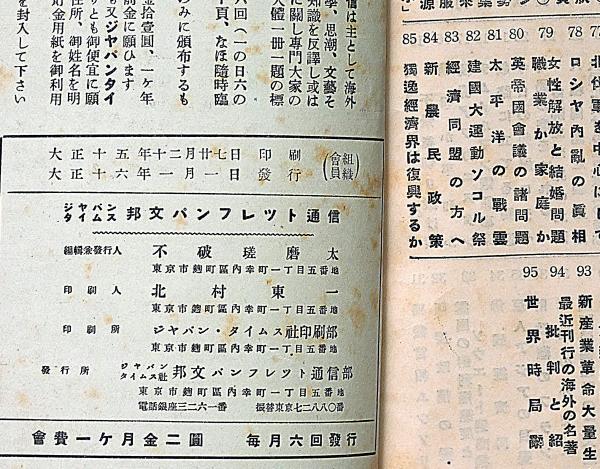 信は主として海外
、思潮、文藝そ
知識を反譯し或は
に關し專門大家の
體一冊一題の標
六回（一の日六の
頁、なほ隨時臨
のみに頒布するも
金拾壹圓、一ヶ年
前金に願ひます
も又ジヤパンタイ
りとも御便宜に願
住所、御姓名を明
貯金用紙を御利用
を封入して下さい
大正十五年十二月廿七日印刷
大正十六年一月一日發行
（組織會員）
ジヤパンタイムス 邦文パンフレツト通信
編輯兼發行人 不破瑳磨太
東京市麹町區內幸町一丁目五番地
印刷人 北村東一
東京市麹町區內幸町一丁目五番地
印刷所 ジヤパン・タイムス社印刷部
東京市麹町區內幸町一丁目五番地
發行所 ジヤパンタイムス社 邦文パンフレツト通信部
東京市麹町區內幸町一丁目五番地
電話銀座三二六一番 振替東京七二八八〇番
會費一ケ月金二圓 每月六回發行
77 ロシヤ內亂の眞相
78 北伐軍を中心にして
79 女性解放と結婚問題
80 職業か家庭か
81 英帝國會議の諸問題
82 太平洋の戰雲
83 建國大運動ソコル祭
84 經濟同盟の方へ
85 新農民政策
獨逸經濟界は復興するか
93 新產業革命大量生
94 最近刊行の海外の名著
批判と紹
95 世界時局